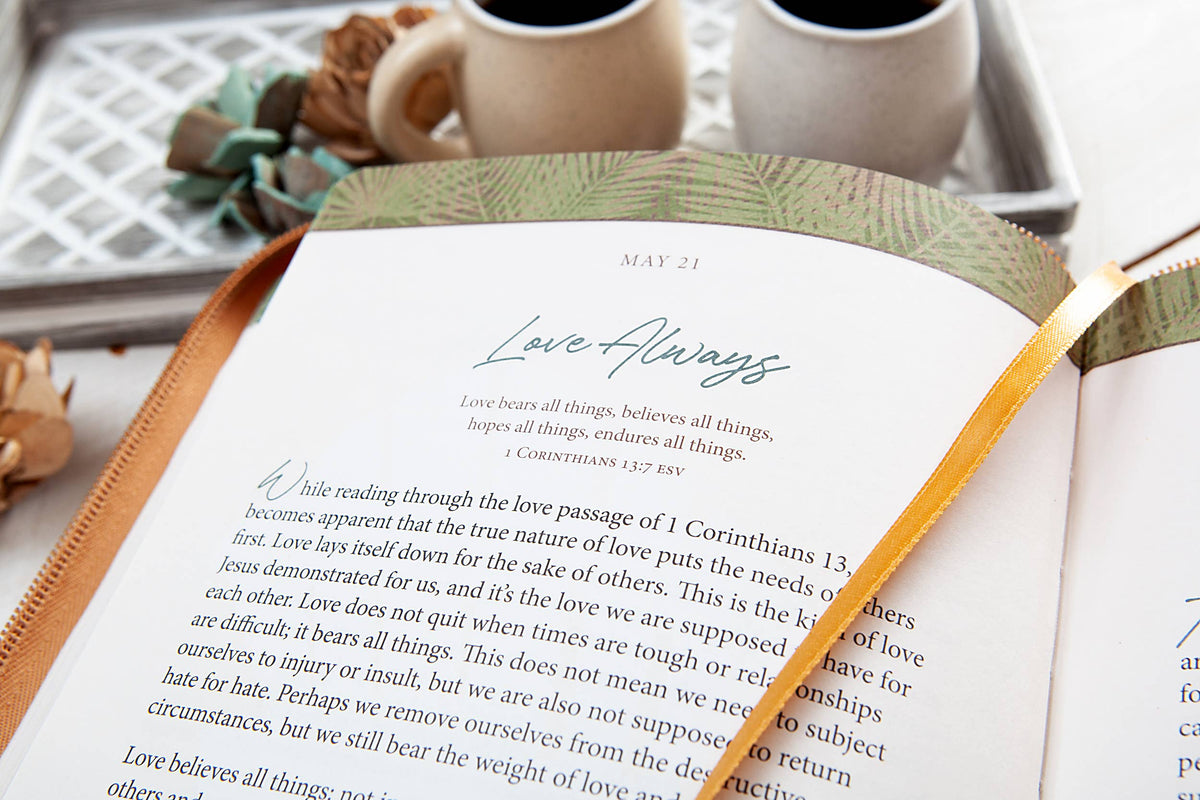 MAY 21
Love Always
Love bears all things, believes all things,
hopes all things, endures all things.
1 CORINTHIANS 13:7 ESV
While reading through the love passage of 1 Corinthians 13,
becomes apparent that the true nature of love puts the needs of others
first. Love lays itself down for the sake of others. This is the kind of love
Jesus demonstrated for us, and it's the love we are supposed to have for
each other. Love does not quit when times are tough or relationships
are difficult; it bears all things. This does not mean we need to subject
ourselves to injury or insult, but we are also not supposed to return
hate for hate. Perhaps we remove ourselves from the destructive
circumstances, but we still bear the weight of love and
Love believes all things; not
others and